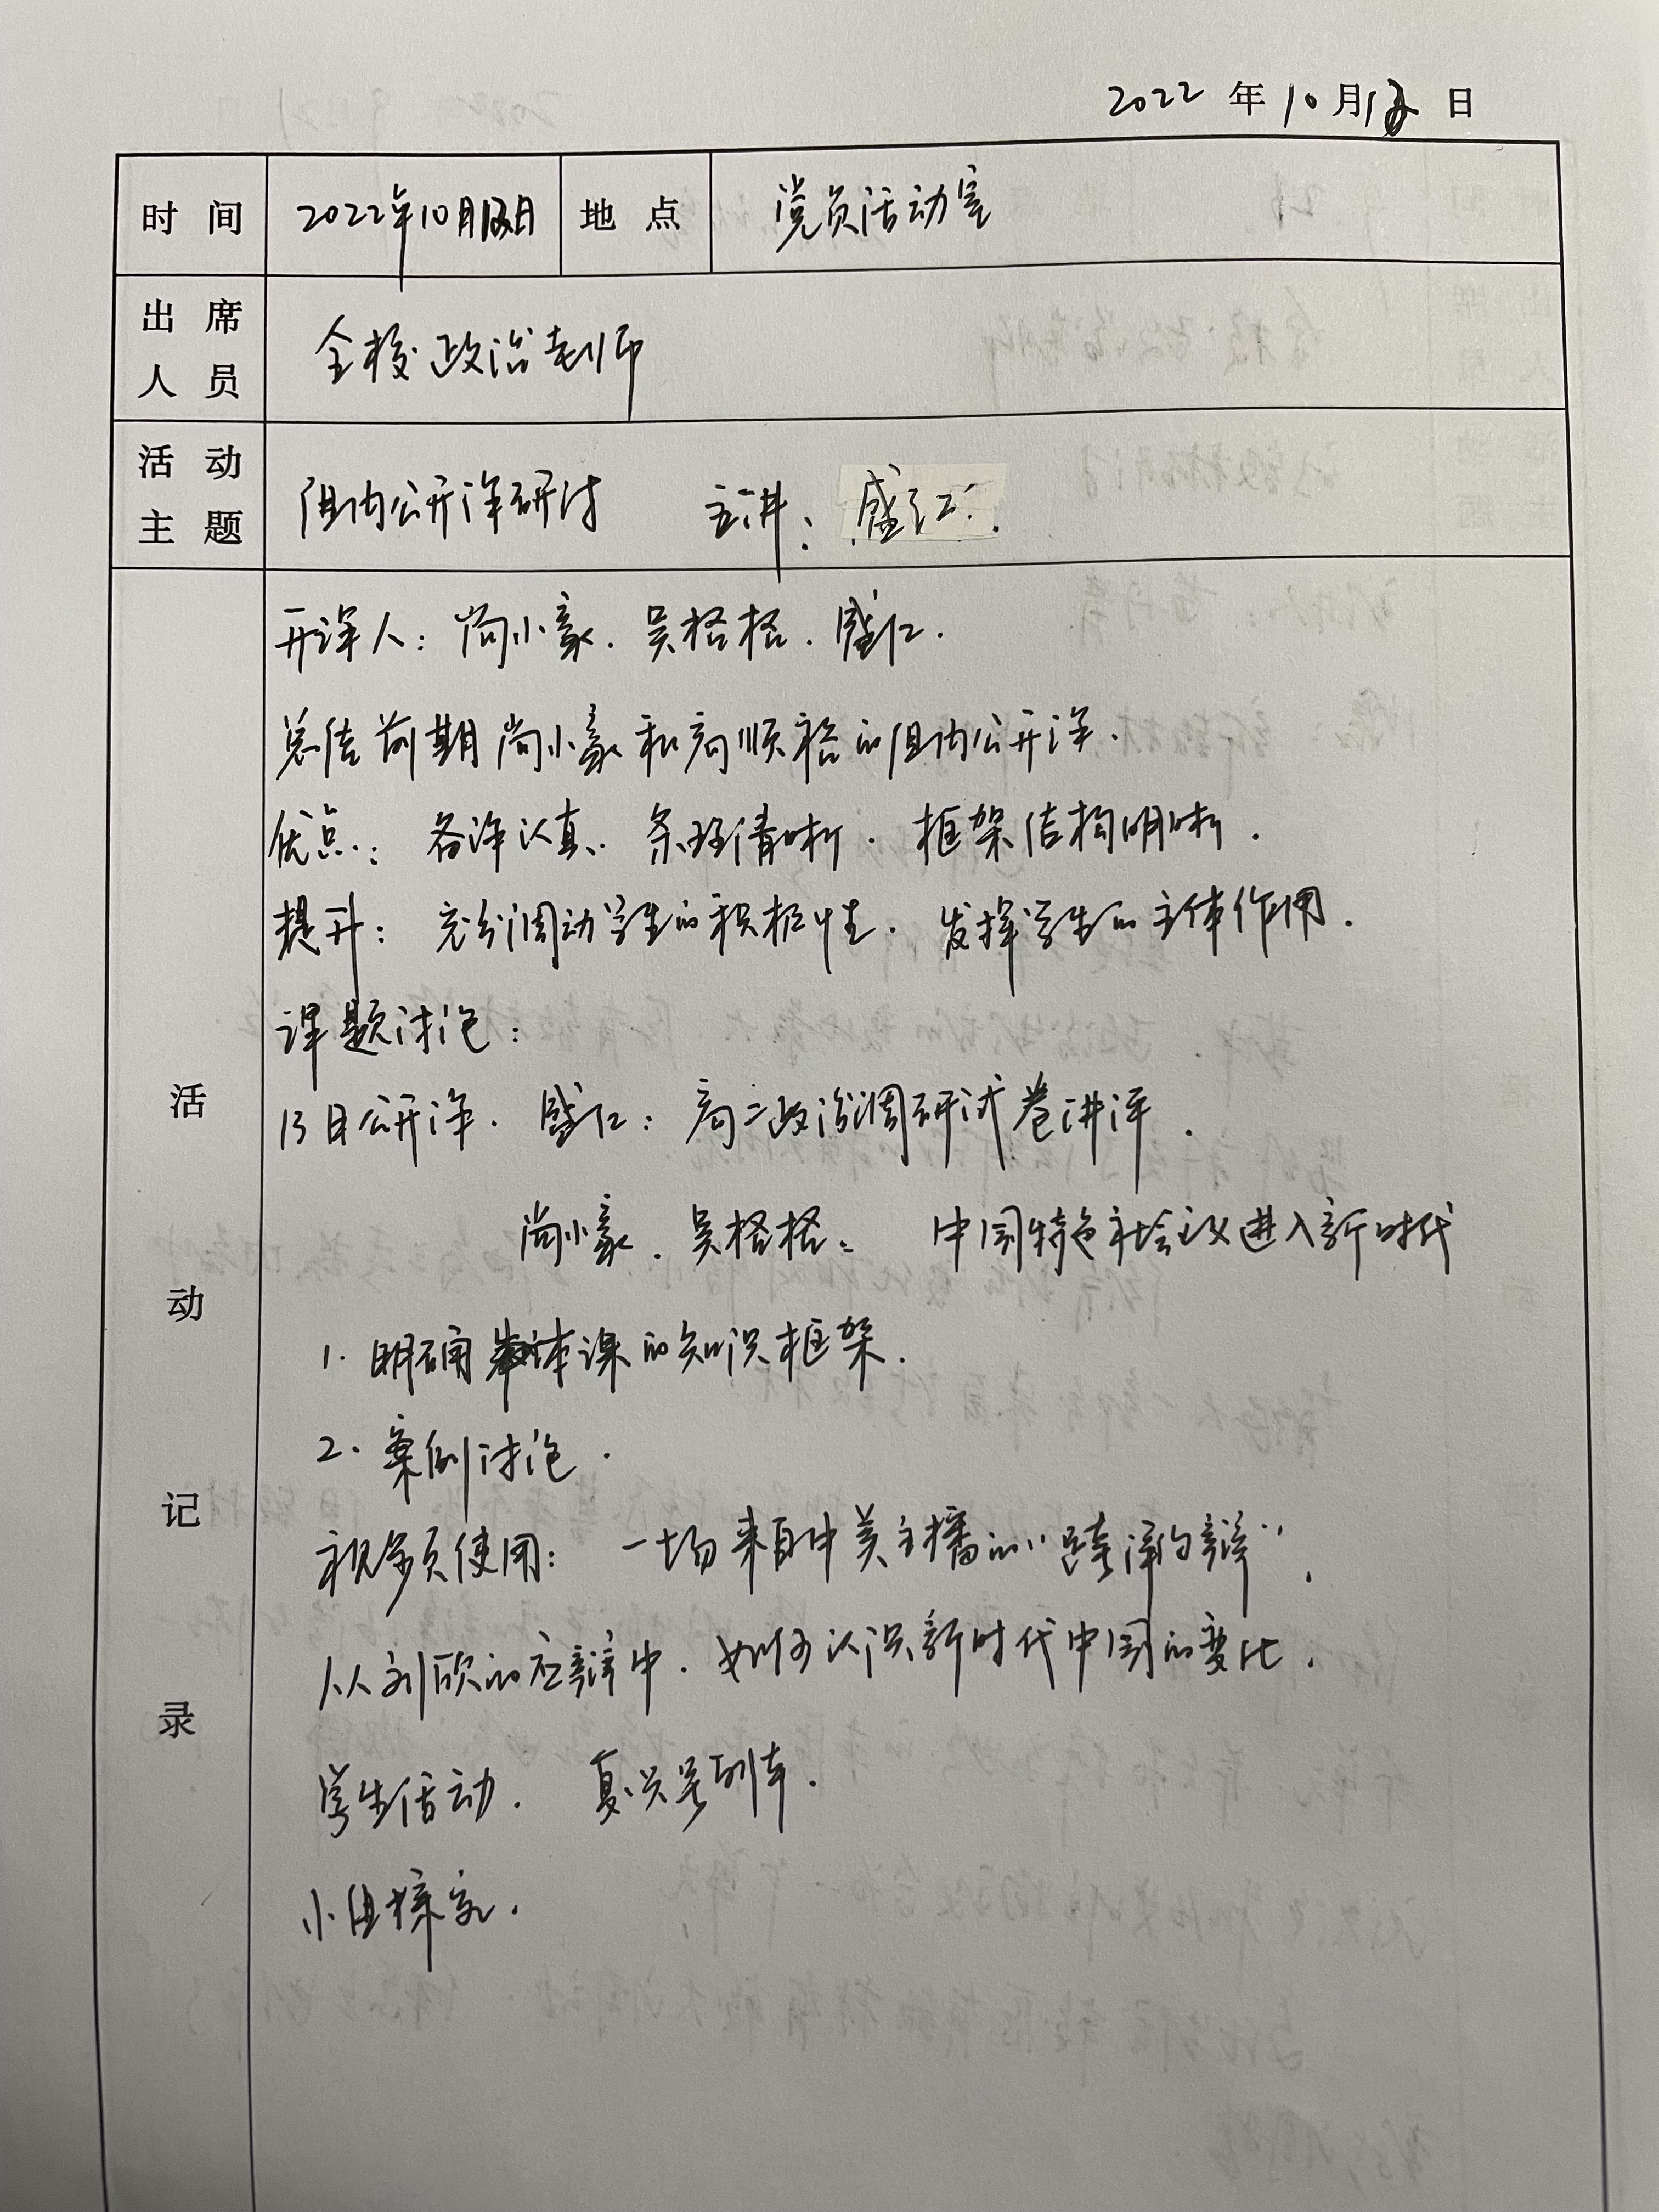 2022 年 10 月 12 日
时间 2022年10月12日 地点 党员活动室
出席人员 全校政治老师
活动主题 组内公开课研讨 主讲：盛红
活动记录
开课人：尚小豪．吴格格．盛红．
总结前期尚小豪和高顺裕的组内公开课．
优点：备课认真．条理清晰．框架结构明晰．
提升：充分调动学生的积极性．发挥学生的主体作用．
课题讨论：
13日公开课．盛红：高二政治调研试卷讲评．
尚小豪．吴格格： 中国特色社会主义进入新时代
1. 明确本课的知识框架．
2. 案例讨论．
视频使用：一场来自中美主播的“跨洋约辩”．
从刘欣的应辩中．如何认识新时代中国的变化．
学生活动． 复兴号列车．
小组探究．